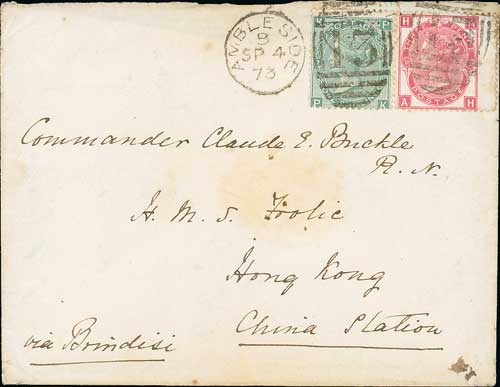 AMBLESIDE
9
SP 4
73
K P
P K
13
H A
POSTAGE
A H
Commander Claude E. Buckle
R. N.
H. M. S. Frolic
Hong Kong
China Station
via Brindisi